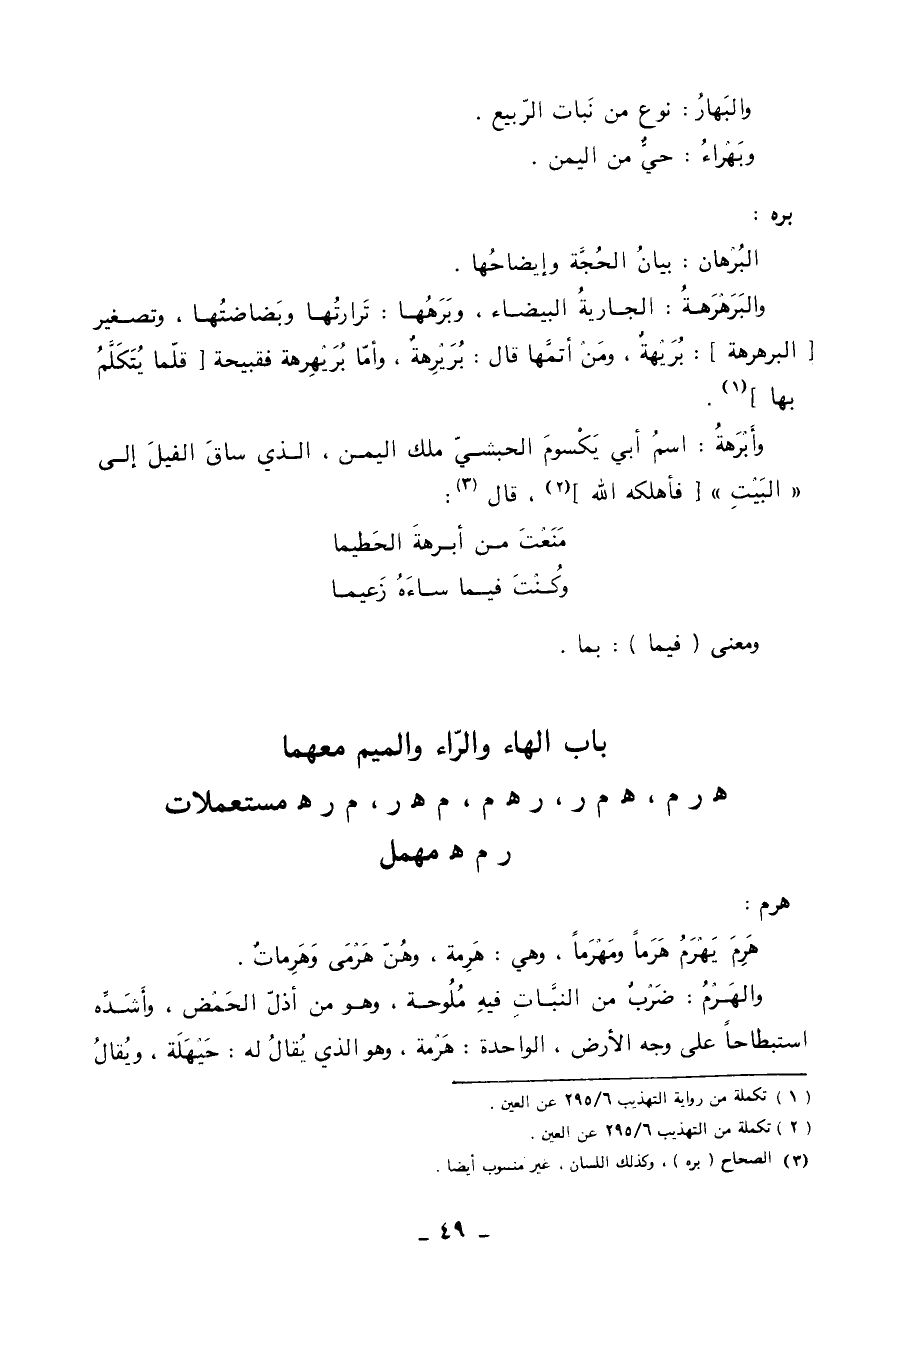 والبَهارُ : نوع من نَبات الرّبيع .
وبَهْراءُ : حيٌّ من اليمن .
بره :
البُرْهان : بيانُ الحُجَّة وإيضاحُها .
والبَرَهْرَهـةُ : الجـاريةُ البيضـاء ، وبَرَهُهـا : تَرارتُهـا وبَضاضتُهـا ، وتصـغير
[ البرهرهة ] : بُرَيْهةٌ ، ومَنْ أتمَّها قال : بُرَيْرِهةٌ ، وأمّا بُرَيْهرِهة فقبيحة [ قلّما يُتَكَلَّمُ
بها ](١) .
وأَبْرَهةُ : اسمُ أبي يَكْسومَ الحبشـيّ ملك اليمـن ، الـذي ساقَ الفيلَ إلـى
« البَيْتِ » [ فأهلكه الله ](٢) ، قال (٣) :
مَنَعْتَ مـن أبـرهةَ الحَطيما
وكُـنْتَ فيـما سـاءَهُ زَعيمـا
ومعنى ( فيما ) : بما .
باب الهاء والرّاء والميم معهما
ه ر م ، ه م ر ، ر ه م ، م ه ر ، م ر ه مستعملات
ر م ه مهمل
هرم :
هَرِمَ يَهْرَمُ هَرَماً ومَهْرَماً ، وهي : هَرِمة ، وهُنّ هَرْمَى وَهَرِماتٌ .
والهَـرْمُ : ضَرْبٌ من النبَّـاتِ فيهِ مُلُوحـة ، وهـو من أذلّ الحَمْض ، وأَشَـدِّه
استبطاحاً على وجه الأرض ، الواحدة : هَرْمة ، وهو الذي يُقالُ له : حَيْهَلَة ، ويُقالُ
( ١ ) تكملة من رواية التهذيب ٢٩٥/٦ عن العين .
( ٢ ) تكملة من التهذيب ٢٩٥/٦ عن العين .
(٣) الصحاح ( بره ) ، وكذلك اللسان ، غير منسوب أيضا .
ـ ٤٩ ـ